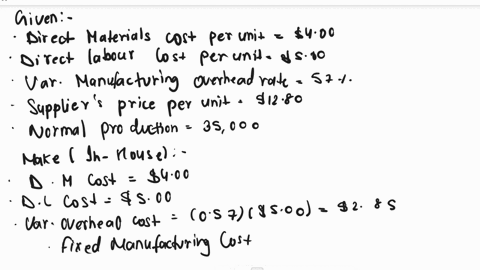 Given:-
· Direct Materials cost per unit = $4.00
· Direct labour Cost per unit = $5.00
· Var. Manufacturing overhead rate = 57%.
- Supplier's price per unit = $12.80
· Normal production = 35,000
Make (In-House):-
· D.M Cost = $4.00
· D.L Cost = $5.00
· Var. overhead cost = (0.57)($5.00) = $2.85
· Fixed Manufacturing Cost